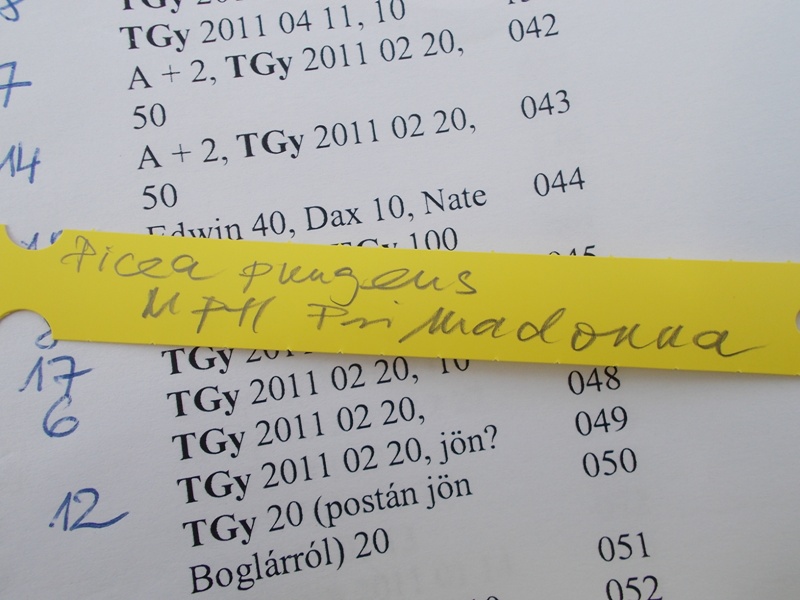 TGy 2011 04 11, 10
7 A + 2, TGy 2011 02 20, 042
50
14 A + 2, TGy 2011 02 20, 043
50
Edwin 40, Dax 10, Nate 044
100
Picea pungens
MPH Primadonna
17 TGy
6 TGy 2011 02 20, 10 048
TGy 2011 02 20, 049
TGy 2011 02 20, jön? 050
12 TGy 20 (postán jön
Boglárról) 20 051
052